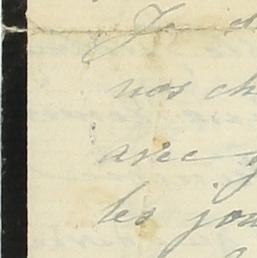 Je d
nos ch
avec g
les jou